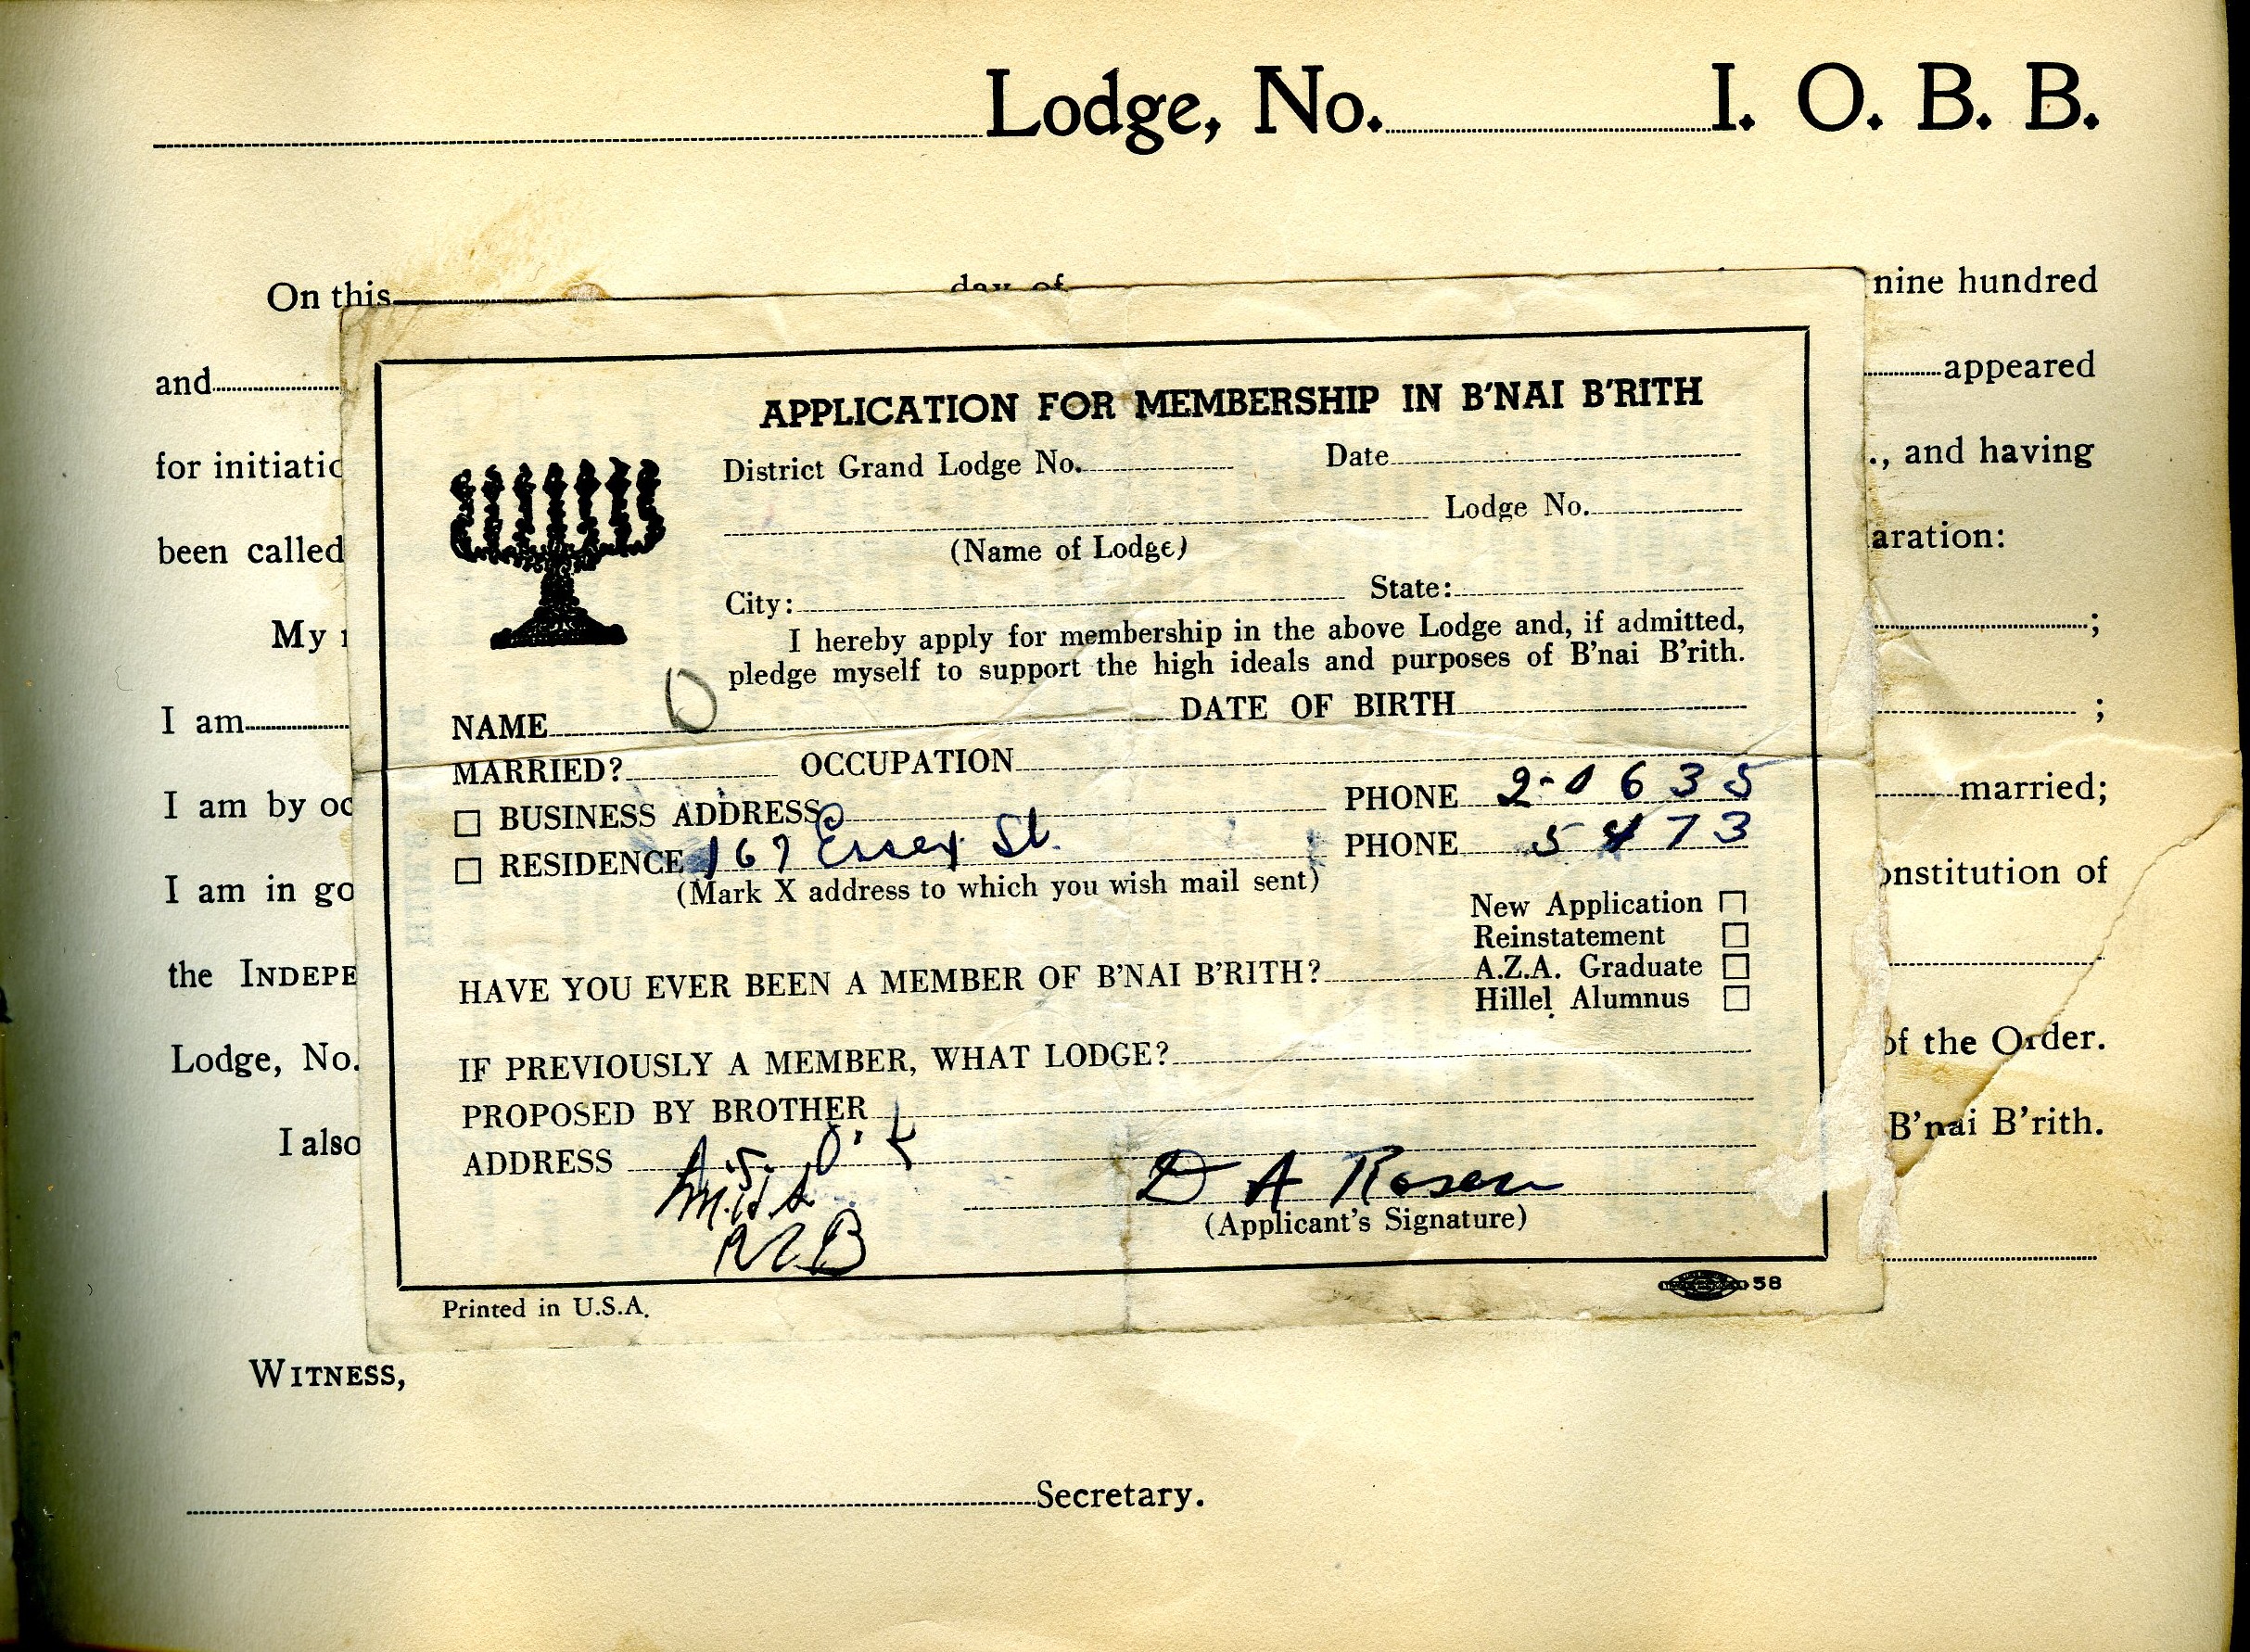 Lodge, No. I. O. B. B.
On this day of nine hundred
and appeared
for initiatic ., and having
been called aration:
My ;
I am ;
I am by oc married;
I am in go onstitution of
the INDEPE
Lodge, No. of the Order.
I also B'nai B'rith.
APPLICATION FOR MEMBERSHIP IN B'NAI B'RITH
District Grand Lodge No. Date
Lodge No.
(Name of Lodge)
City: State:
I hereby apply for membership in the above Lodge and, if admitted,
pledge myself to support the high ideals and purposes of B'nai B'rith.
NAME DATE OF BIRTH
MARRIED? OCCUPATION
BUSINESS ADDRESS PHONE 2-0635
RESIDENCE 167 Essex St. PHONE 5473
(Mark X address to which you wish mail sent)
New Application
Reinstatement
HAVE YOU EVER BEEN A MEMBER OF B'NAI B'RITH? A.Z.A. Graduate
Hillel Alumnus
IF PREVIOUSLY A MEMBER, WHAT LODGE?
PROPOSED BY BROTHER
ADDRESS
D A Rosen
(Applicant's Signature)
Printed in U.S.A.
58
WITNESS,
Secretary.